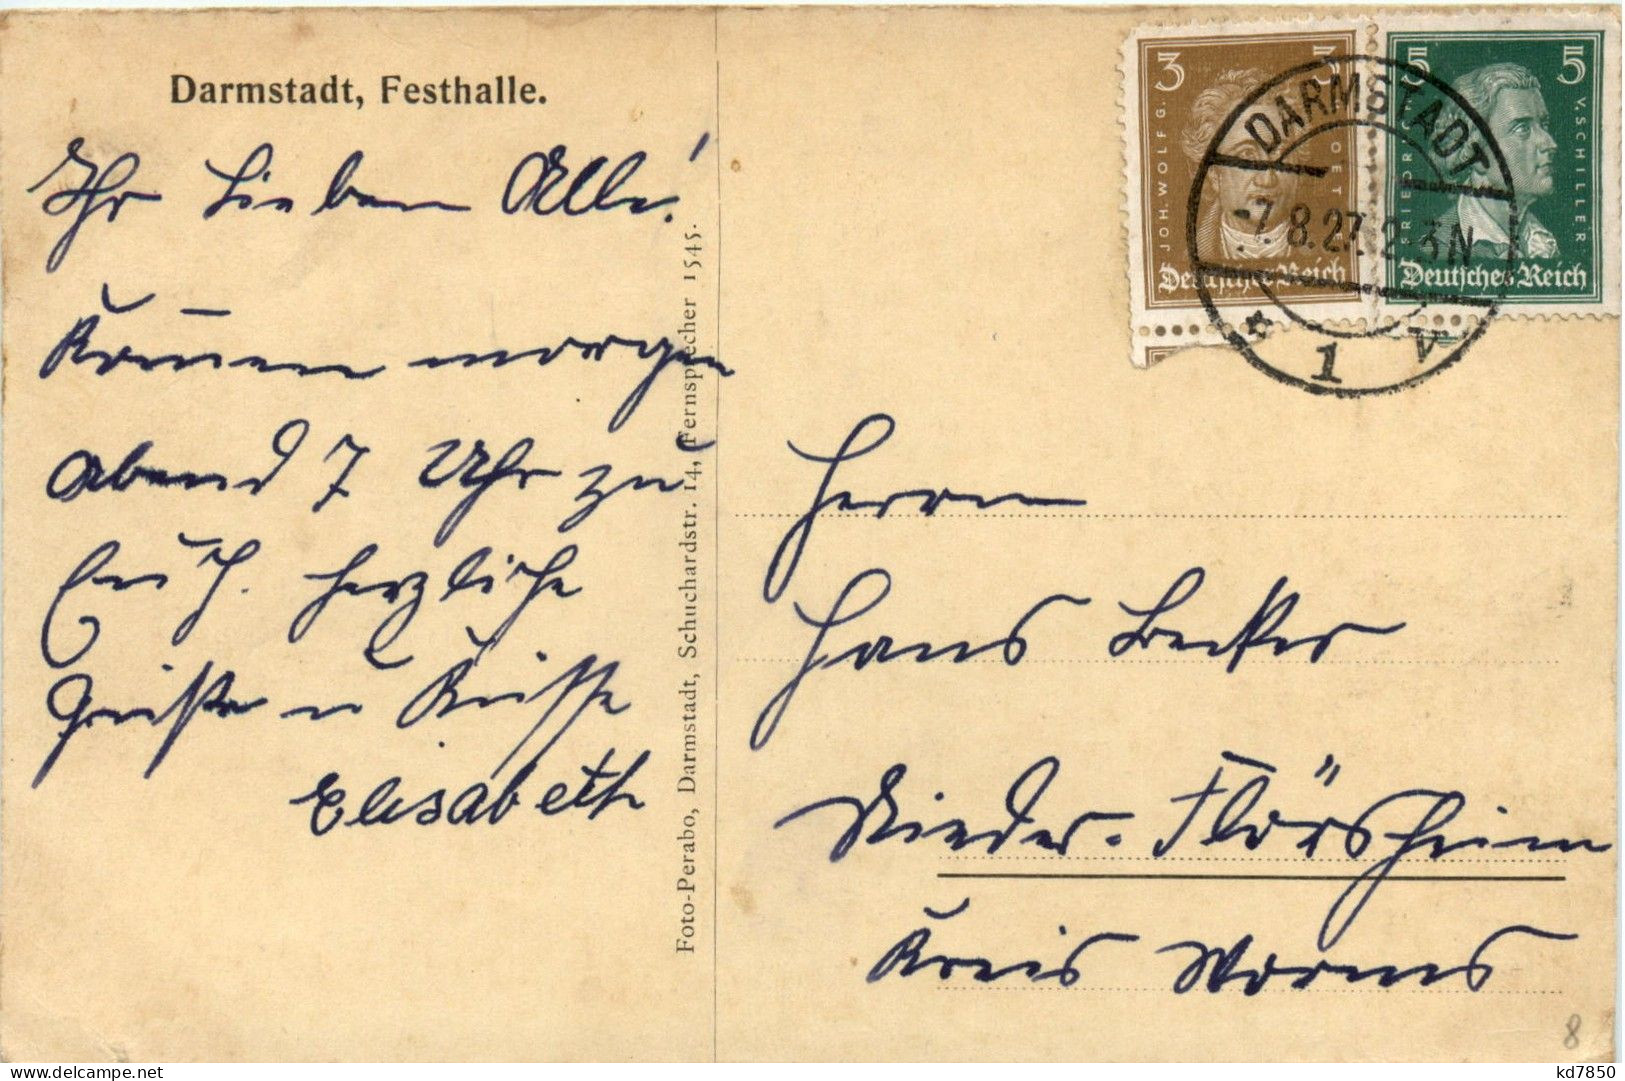 Darmstadt, Festhalle.
Ihr Lieben Alle!
Kommen morgen
abend 7 Uhr zu
Euch. herzliche
Grüße u Küsse
Elisabeth
Foto-Perabo, Darmstadt, Schuchardstr. 14, Fernsprecher 1545.
3 3
JOH. WOLFG. GOETHE
Deutsches Reich
5 5
FRIEDRICH V. SCHILLER
Deutsches Reich
DARMSTADT
-7.8.27. 2-3N
* 1 V
Herrn
Hans Becker
Nieder-Flörsheim
Kreis Worms
8
kd7850